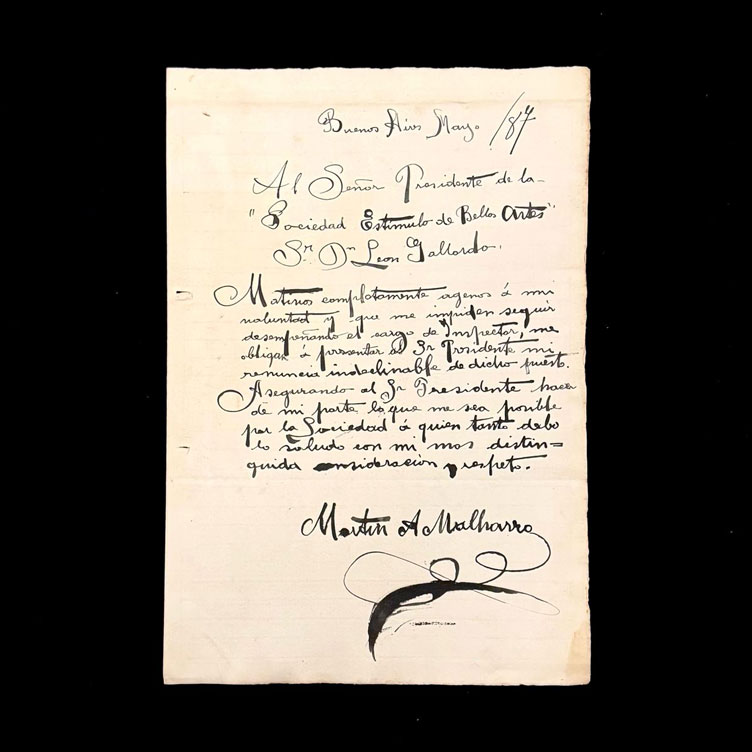 Buenos Aires Mayo /87
Al Señor Presidente de la
"Sociedad Estimulo de Bellas Artes"
Sr. Dn Leon Gallardo.
Motivos completamente agenos á mi
voluntad y que me impiden seguir
desempeñando el cargo de Inspector, me
obligan á presentar al Sr Presidente mi
renuncia indeclinable de dicho puesto.
Asegurando al Sr Presidente hacer
de mi parte lo que me sea posible
por la Sociedad á quien tanto debo
lo saludo con mi mas distin=
guida consideración y respeto.
Martin A Malharro